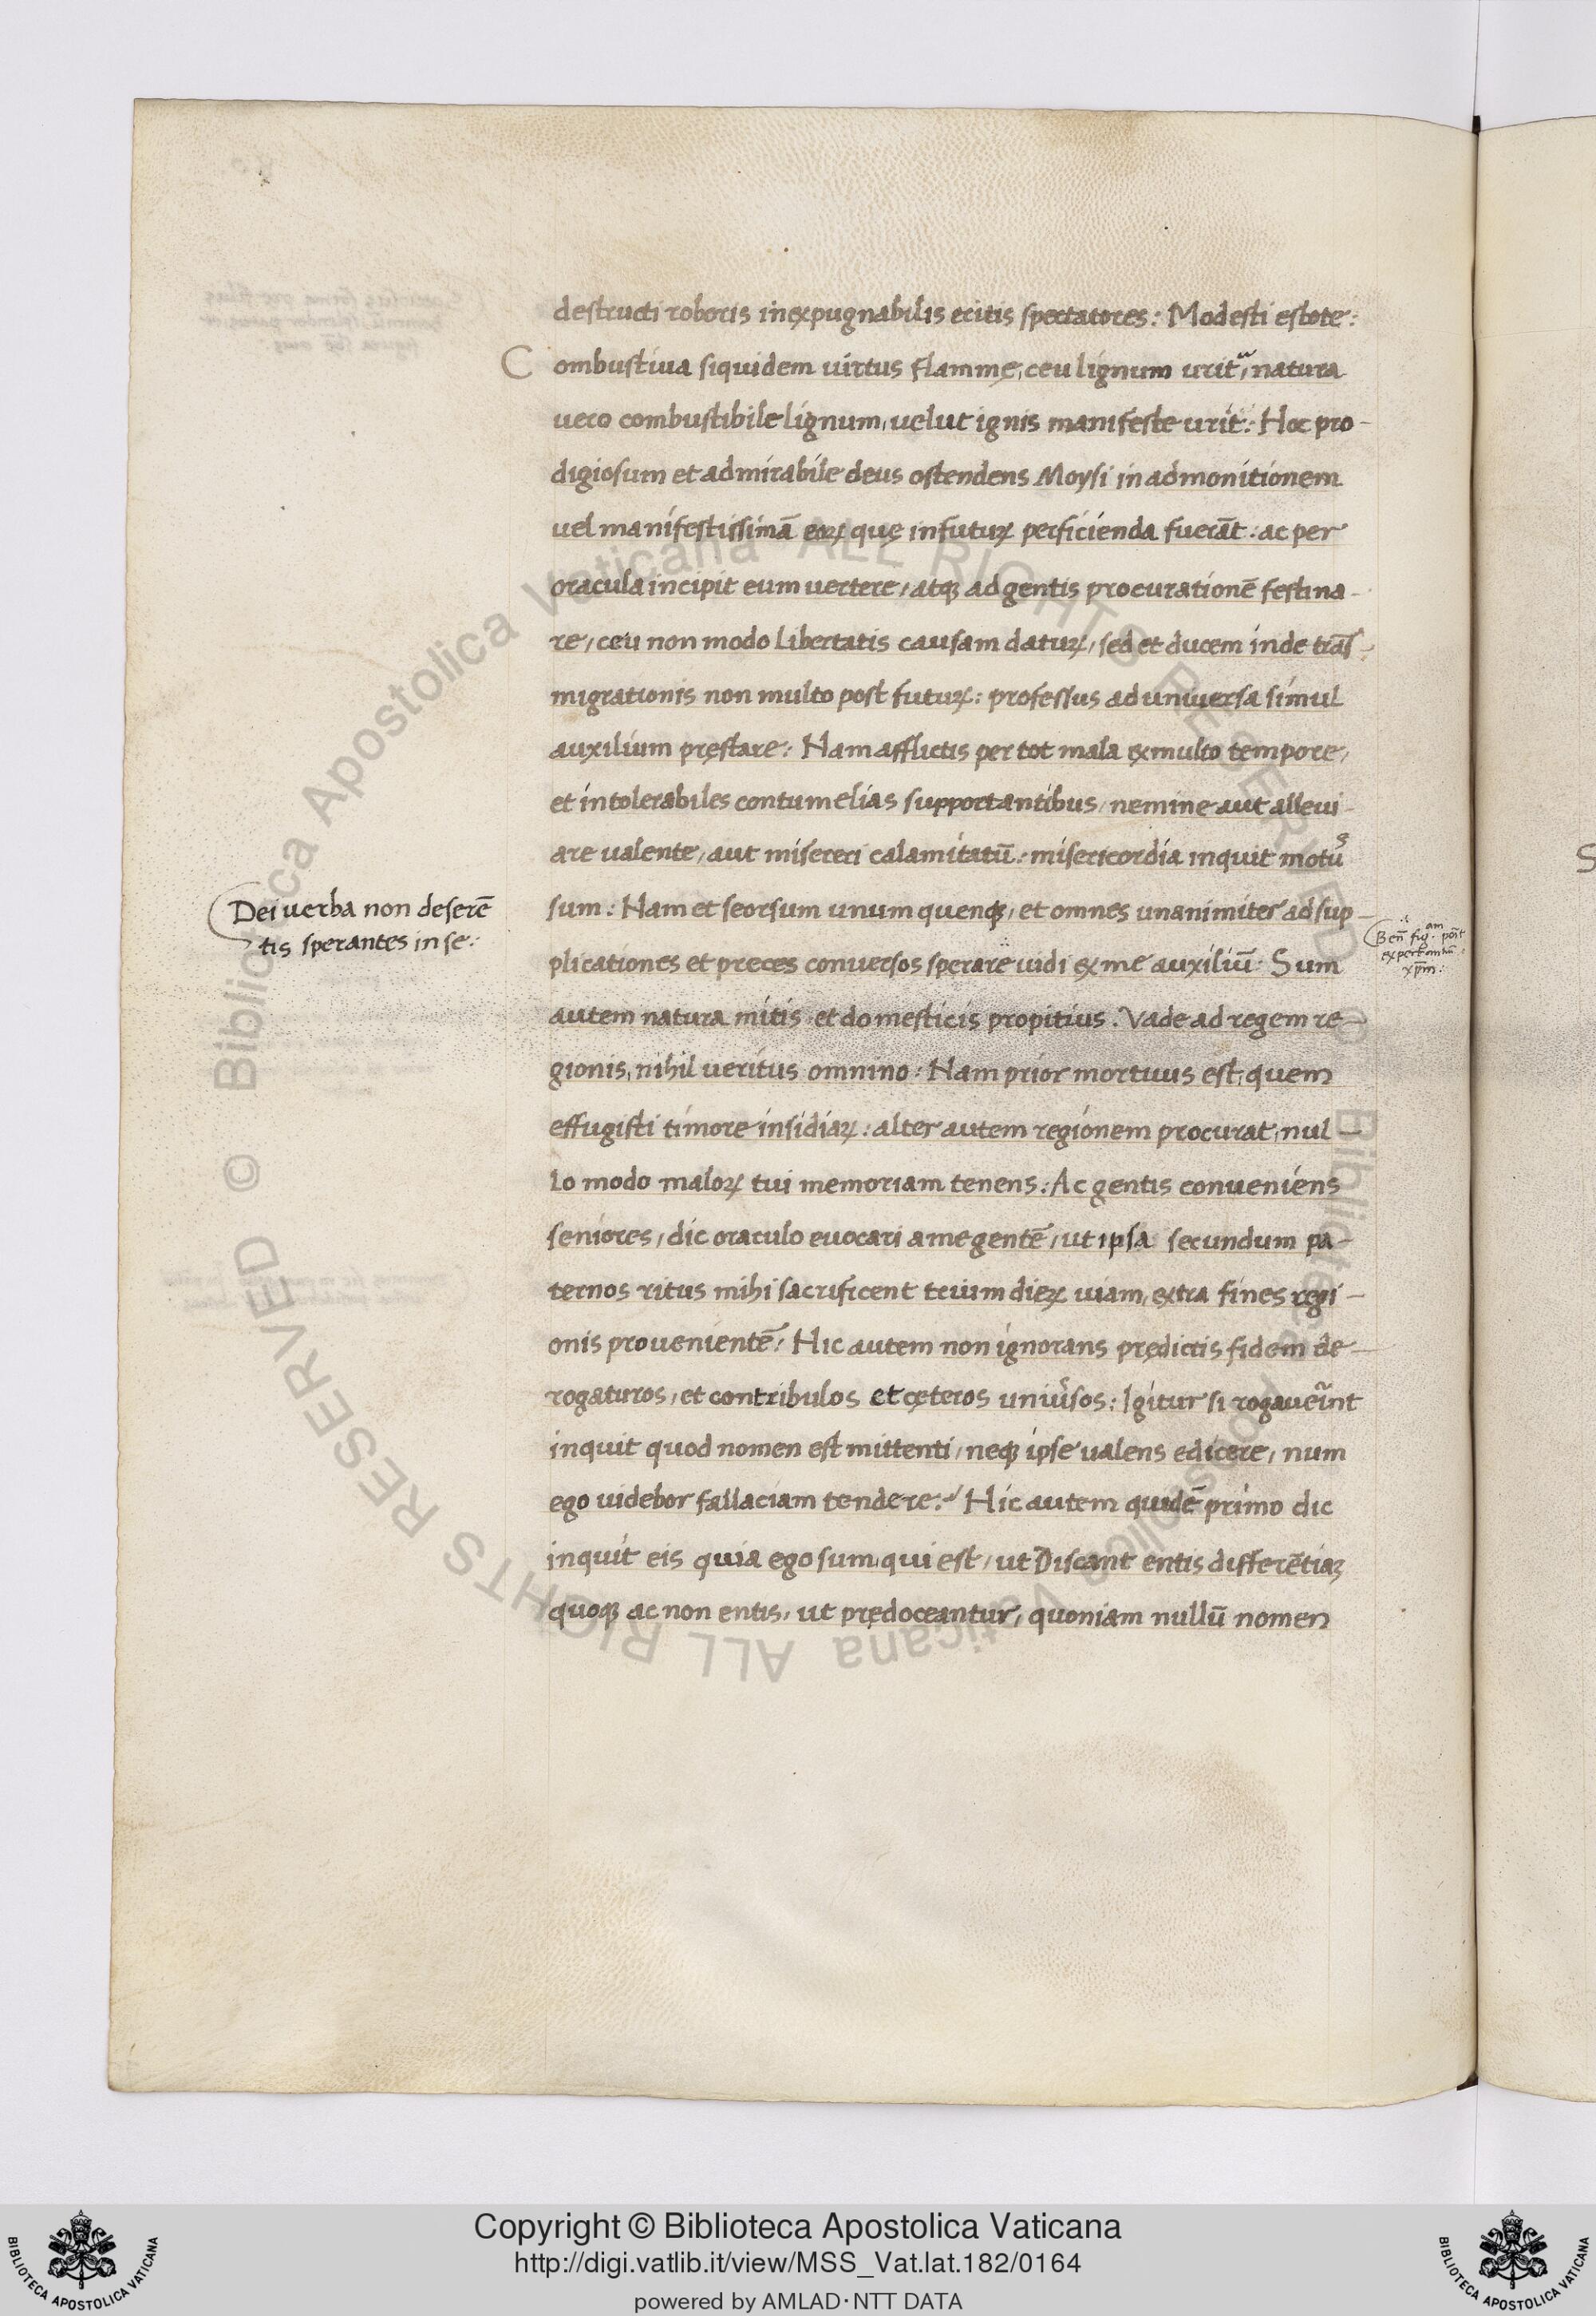 destructi roboris inexpugnabilis eritis spectatores: Modesti estote:
Combustiua siquidem uirtus flammę, ceu lignum urit᷑, natura
uero combustibile lignum, uelut ignis manifeste urit: Hoc pro-
digiosum et admirabile deus ostendens Moysi in admonitionem
uel manifestissimā eoꝝ quę in futuꝝ perficienda fuerāt: ac per
oracula incipit eum uertere, atqꝫ ad gentis procurationē festina-
re, ceu non modo libertatis causam datuꝝ, sed et ducem inde trās-
migrationis non multo post futuꝝ: professus ad universa simul
auxilium pręstare: Nam afflictis per tot mala ex multo tempore,
et intolerabiles contumelias supportantibus, nemine aut alleui-
are ualente, aut misereri calamitatū: misericordia inquit motuꝰ
sum: Nam et seorsum unum quenqꝫ, et omnes unanimiter ad sup-
plicationes et preces conversos sperare uidi ex me auxiliū: Sum
autem natura mitis et domesticis propitius. Vade ad regem re-
gionis, nihil veritus omnino: Nam prior mortuus est, quem
effugisti timore insidiaꝝ: alter autem regionem procurat, nul-
lo modo maloꝝ tui memoriam tenens: Ac gentis conueniens
seniores, dic oraculo evocari a me gentē, ut ipsa secundum pa-
ternos ritus mihi sacrificent trium dieꝝ uiam, extra fines regi-
onis prouenientē: Hic autem non ignorans prędictis fidem de-
rogaturos, et contribulos et cęteros univ̓sos: Igitur si rogaver̄int
inquit quod nomen est mittenti, neqꝫ ipse valens edicere, num
ego videbor fallaciam tendere: Hic autem quidē primo dic
inquit eis quia ego sum qui est, ut Discant entis differētiaꝫ
quoqꝫ ac non entis, ut prędoceantur, quoniam nullū nomen
Dei uerba non deserē
tis sperantes in se:
Ben̄ fig.am pōit
expectantiū
xp̄m:
Copyright © Biblioteca Apostolica Vaticana
http://digi.vatlib.it/view/MSS_Vat.lat.182/0164
powered by AMLAD·NTT DATA